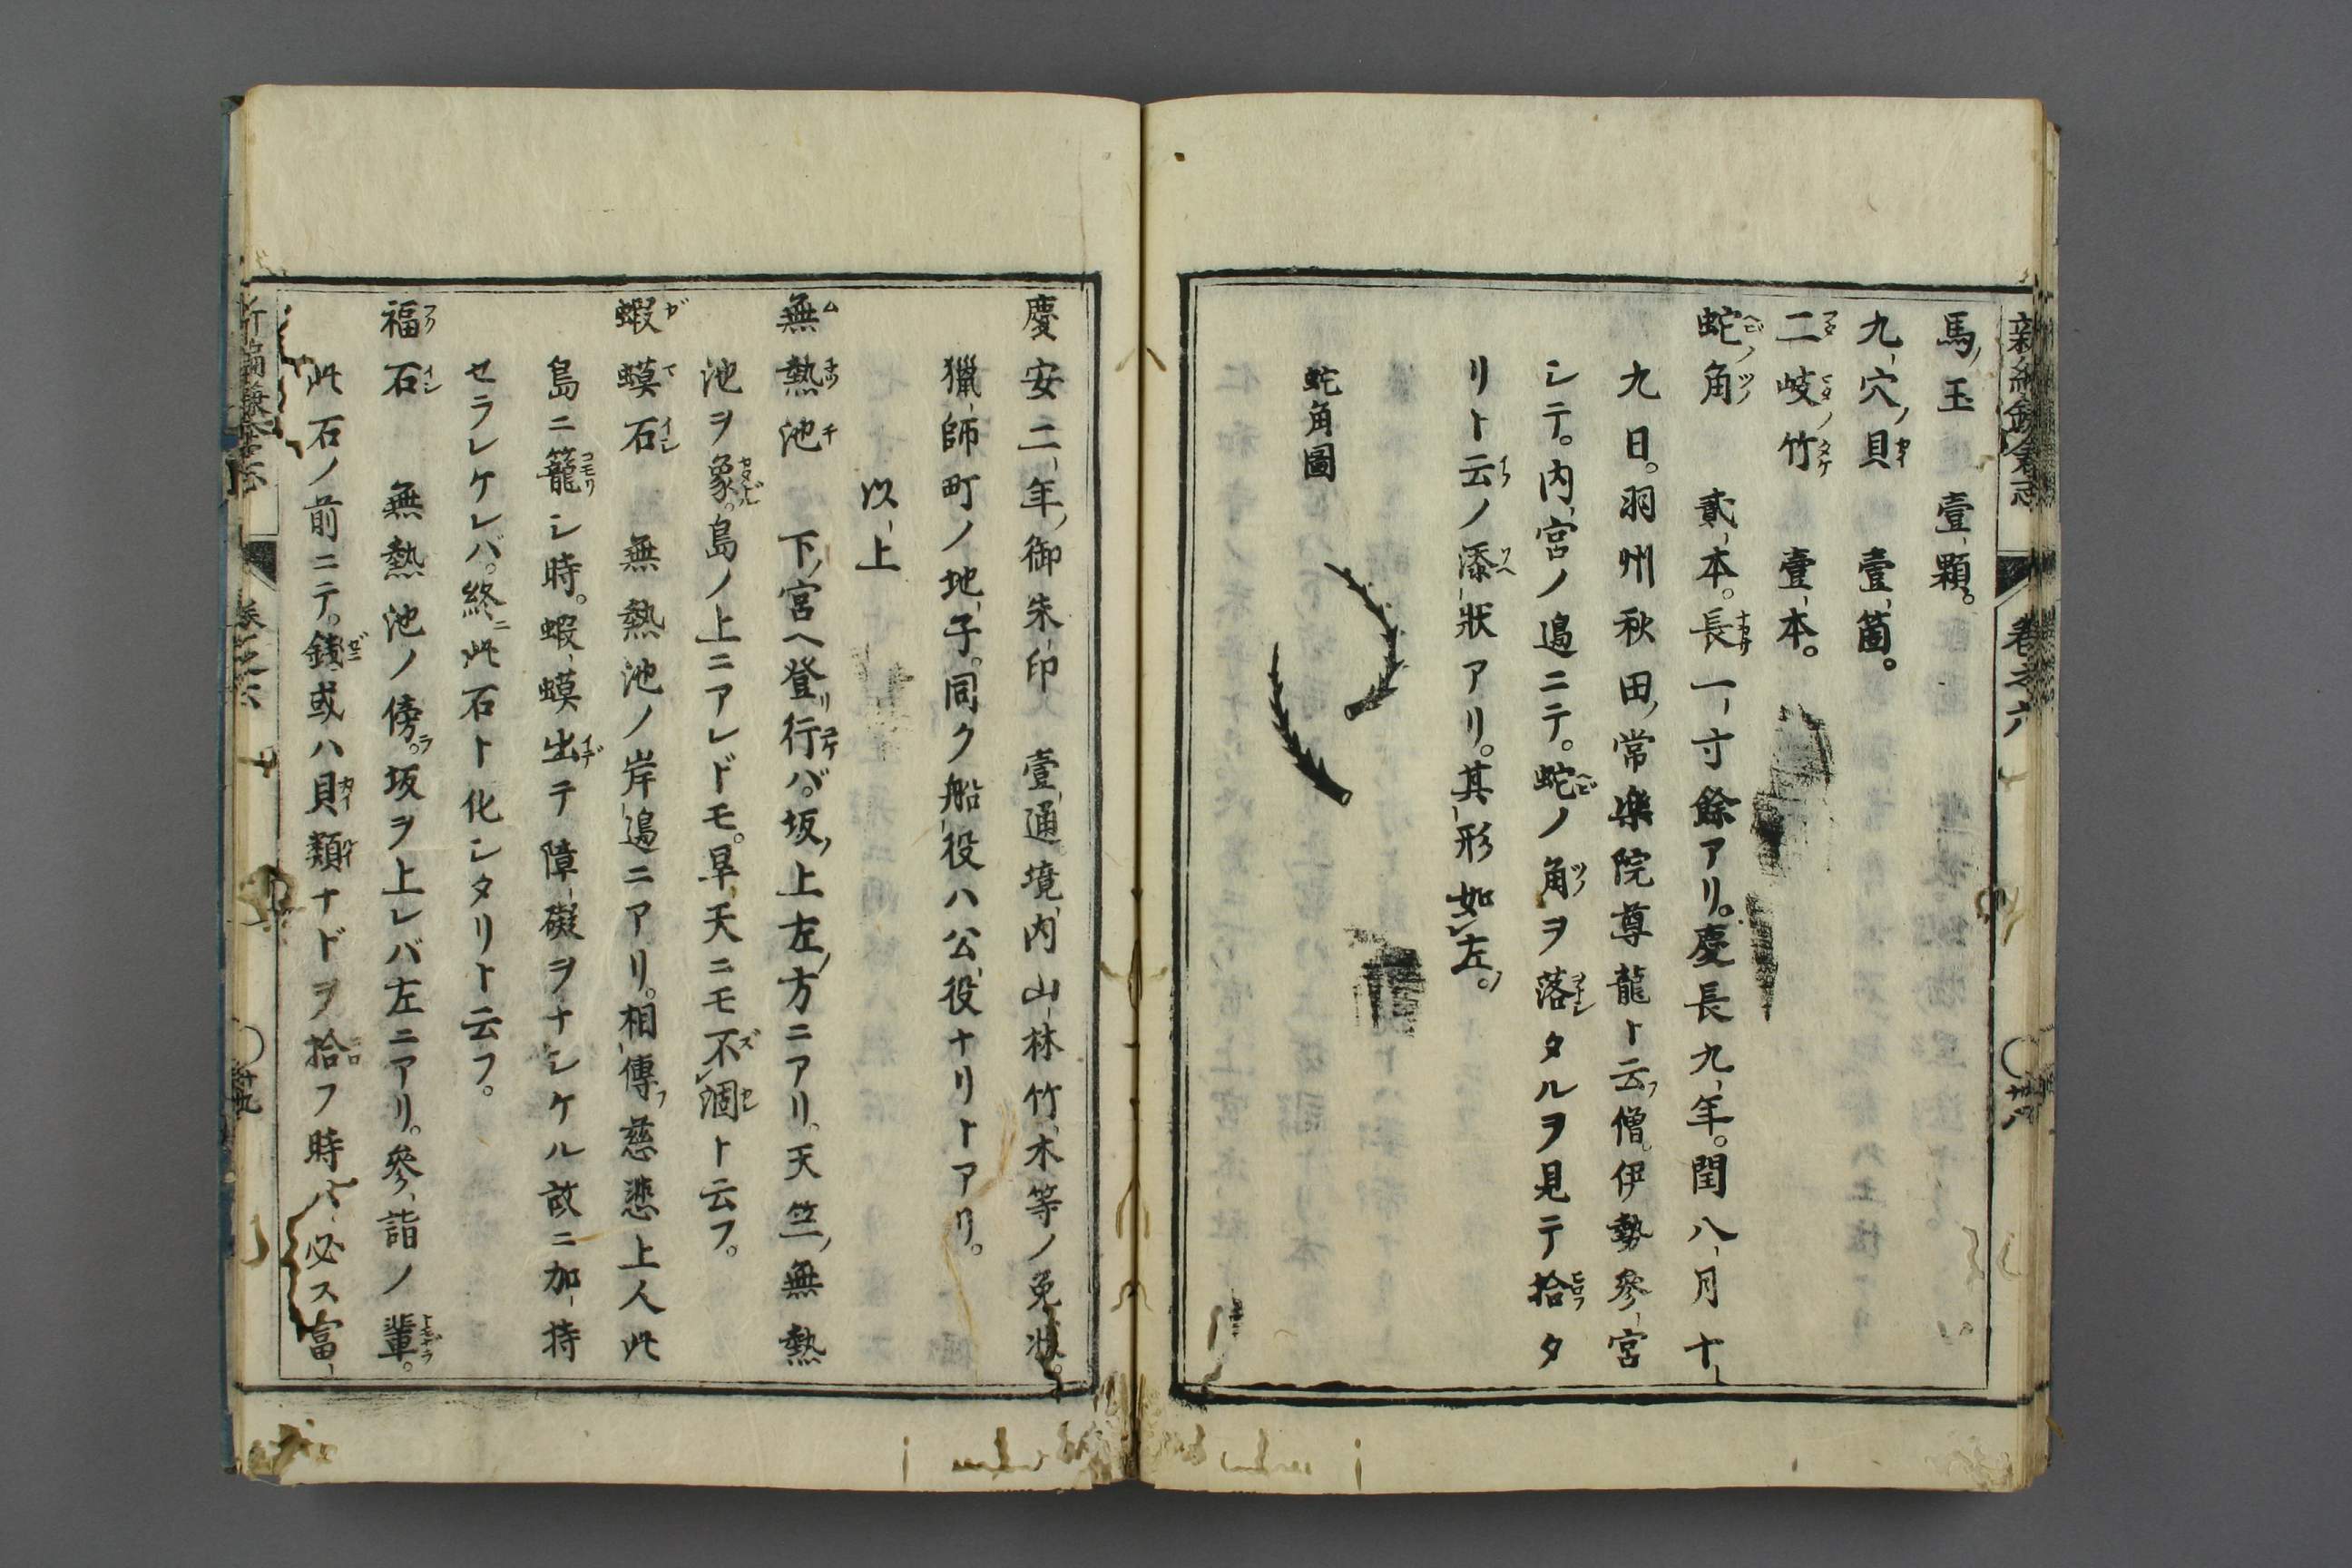 新編鎌倉志
卷之六
馬ノ玉 壹顆。
九穴ノ貝 壹箇。
二岐ノ竹 壹本。
蛇ノ角 貳本。長一寸餘アリ。慶長九年。閏八月十
九日。羽州秋田ノ常樂院尊龍ト云フ僧。伊勢參宮
シテ。内宮ノ邊ニテ。蛇ノ角ヲ落タルヲ見テ拾タ
リト云ノ添狀アリ。其形如左。
蛇角圖
慶安二年ノ御朱印 壹通境内山林竹木等ノ免狀。
獵師町ノ地子。同ク船役ハ公役ナリトアリ。
以上
無熱池 下ノ宮ヘ登リ行バ。坂ノ上左ノ方ニアリ。天竺ノ無熱
池ヲ象。島ノ上ニアレドモ。旱天ニモ不涸ト云フ。
蝦蟆石 無熱池ノ岸邊ニアリ。相傳フ慈悲上人此
島ニ籠シ時。蝦蟆出テ障礙ヲナシケル故ニ加持
セラレケレバ。終ニ此石ト化シタリト云フ。
福石 無熱池ノ傍ラ。坂ヲ上レバ左ニアリ。參詣ノ輩。
此石ノ前ニテ。錢或ハ貝類ナドヲ拾フ時バ必ス富
新編鎌倉志
卷之六